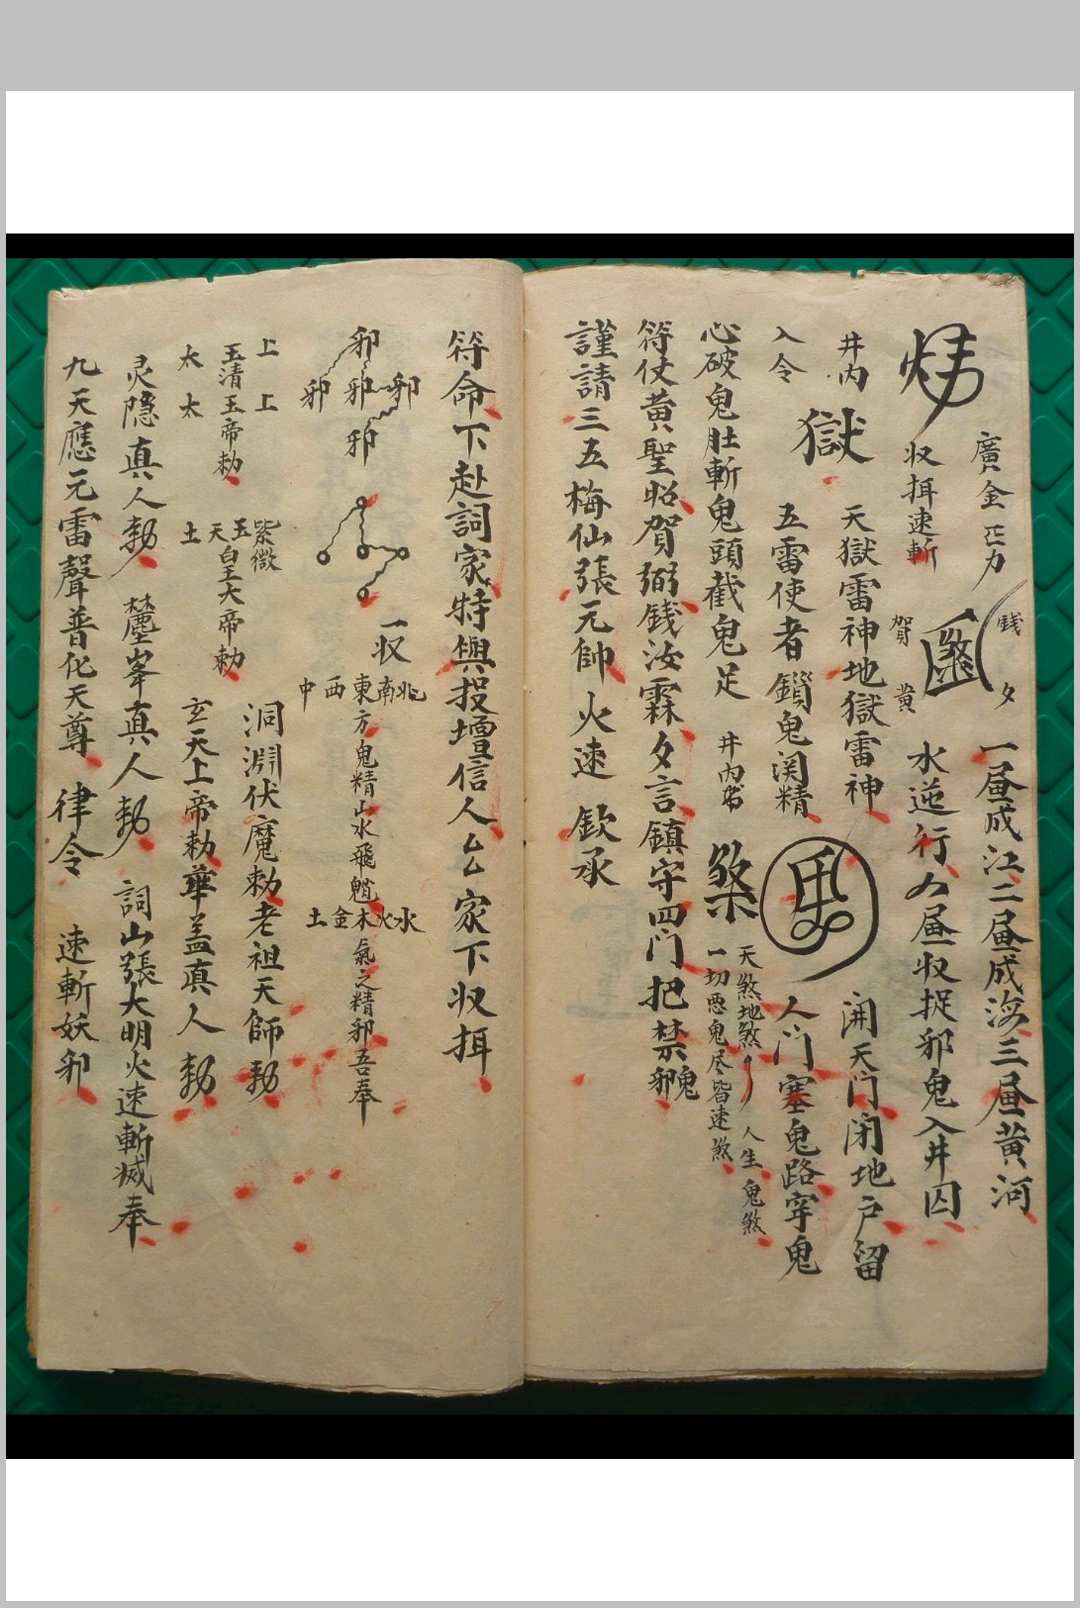 廣金
収揖速斬
錢
夕
賀
黄
一昼成江二昼成海三昼黄河
水逆行
昼収捉邪鬼入井囚
井内
獄
天獄雷神地獄雷神
開天門閉地戸留
入令
五雷使者鎖鬼関精
人門塞鬼路穿鬼
心破鬼肚斬鬼頭截鬼足
井内
煞
天煞地煞
人生鬼煞
一切悪鬼尽皆速煞
符仗黄聖昭賀弼錢汝霖夕言鎮守四门把禁邪鬼
謹請三五梅仙張元帥火速欽承
符命下赴詞家特與投壇信人厶厶家下収揖
邪
邪邪邪
邪
一収
北南東西中
方鬼精山水飛魈
水火木金土
氣之精邪吾奉
上上
玉清玉帝勅
太太
紫微
玉
天皇大帝勅
土
洞淵伏魔勅老祖天師勅
玄天上帝勅華盖真人勅
灵隐真人勅
峯真人勅
詞山張大明火速斬滅奉
九天應元雷聲普化天尊律令速斬妖邪